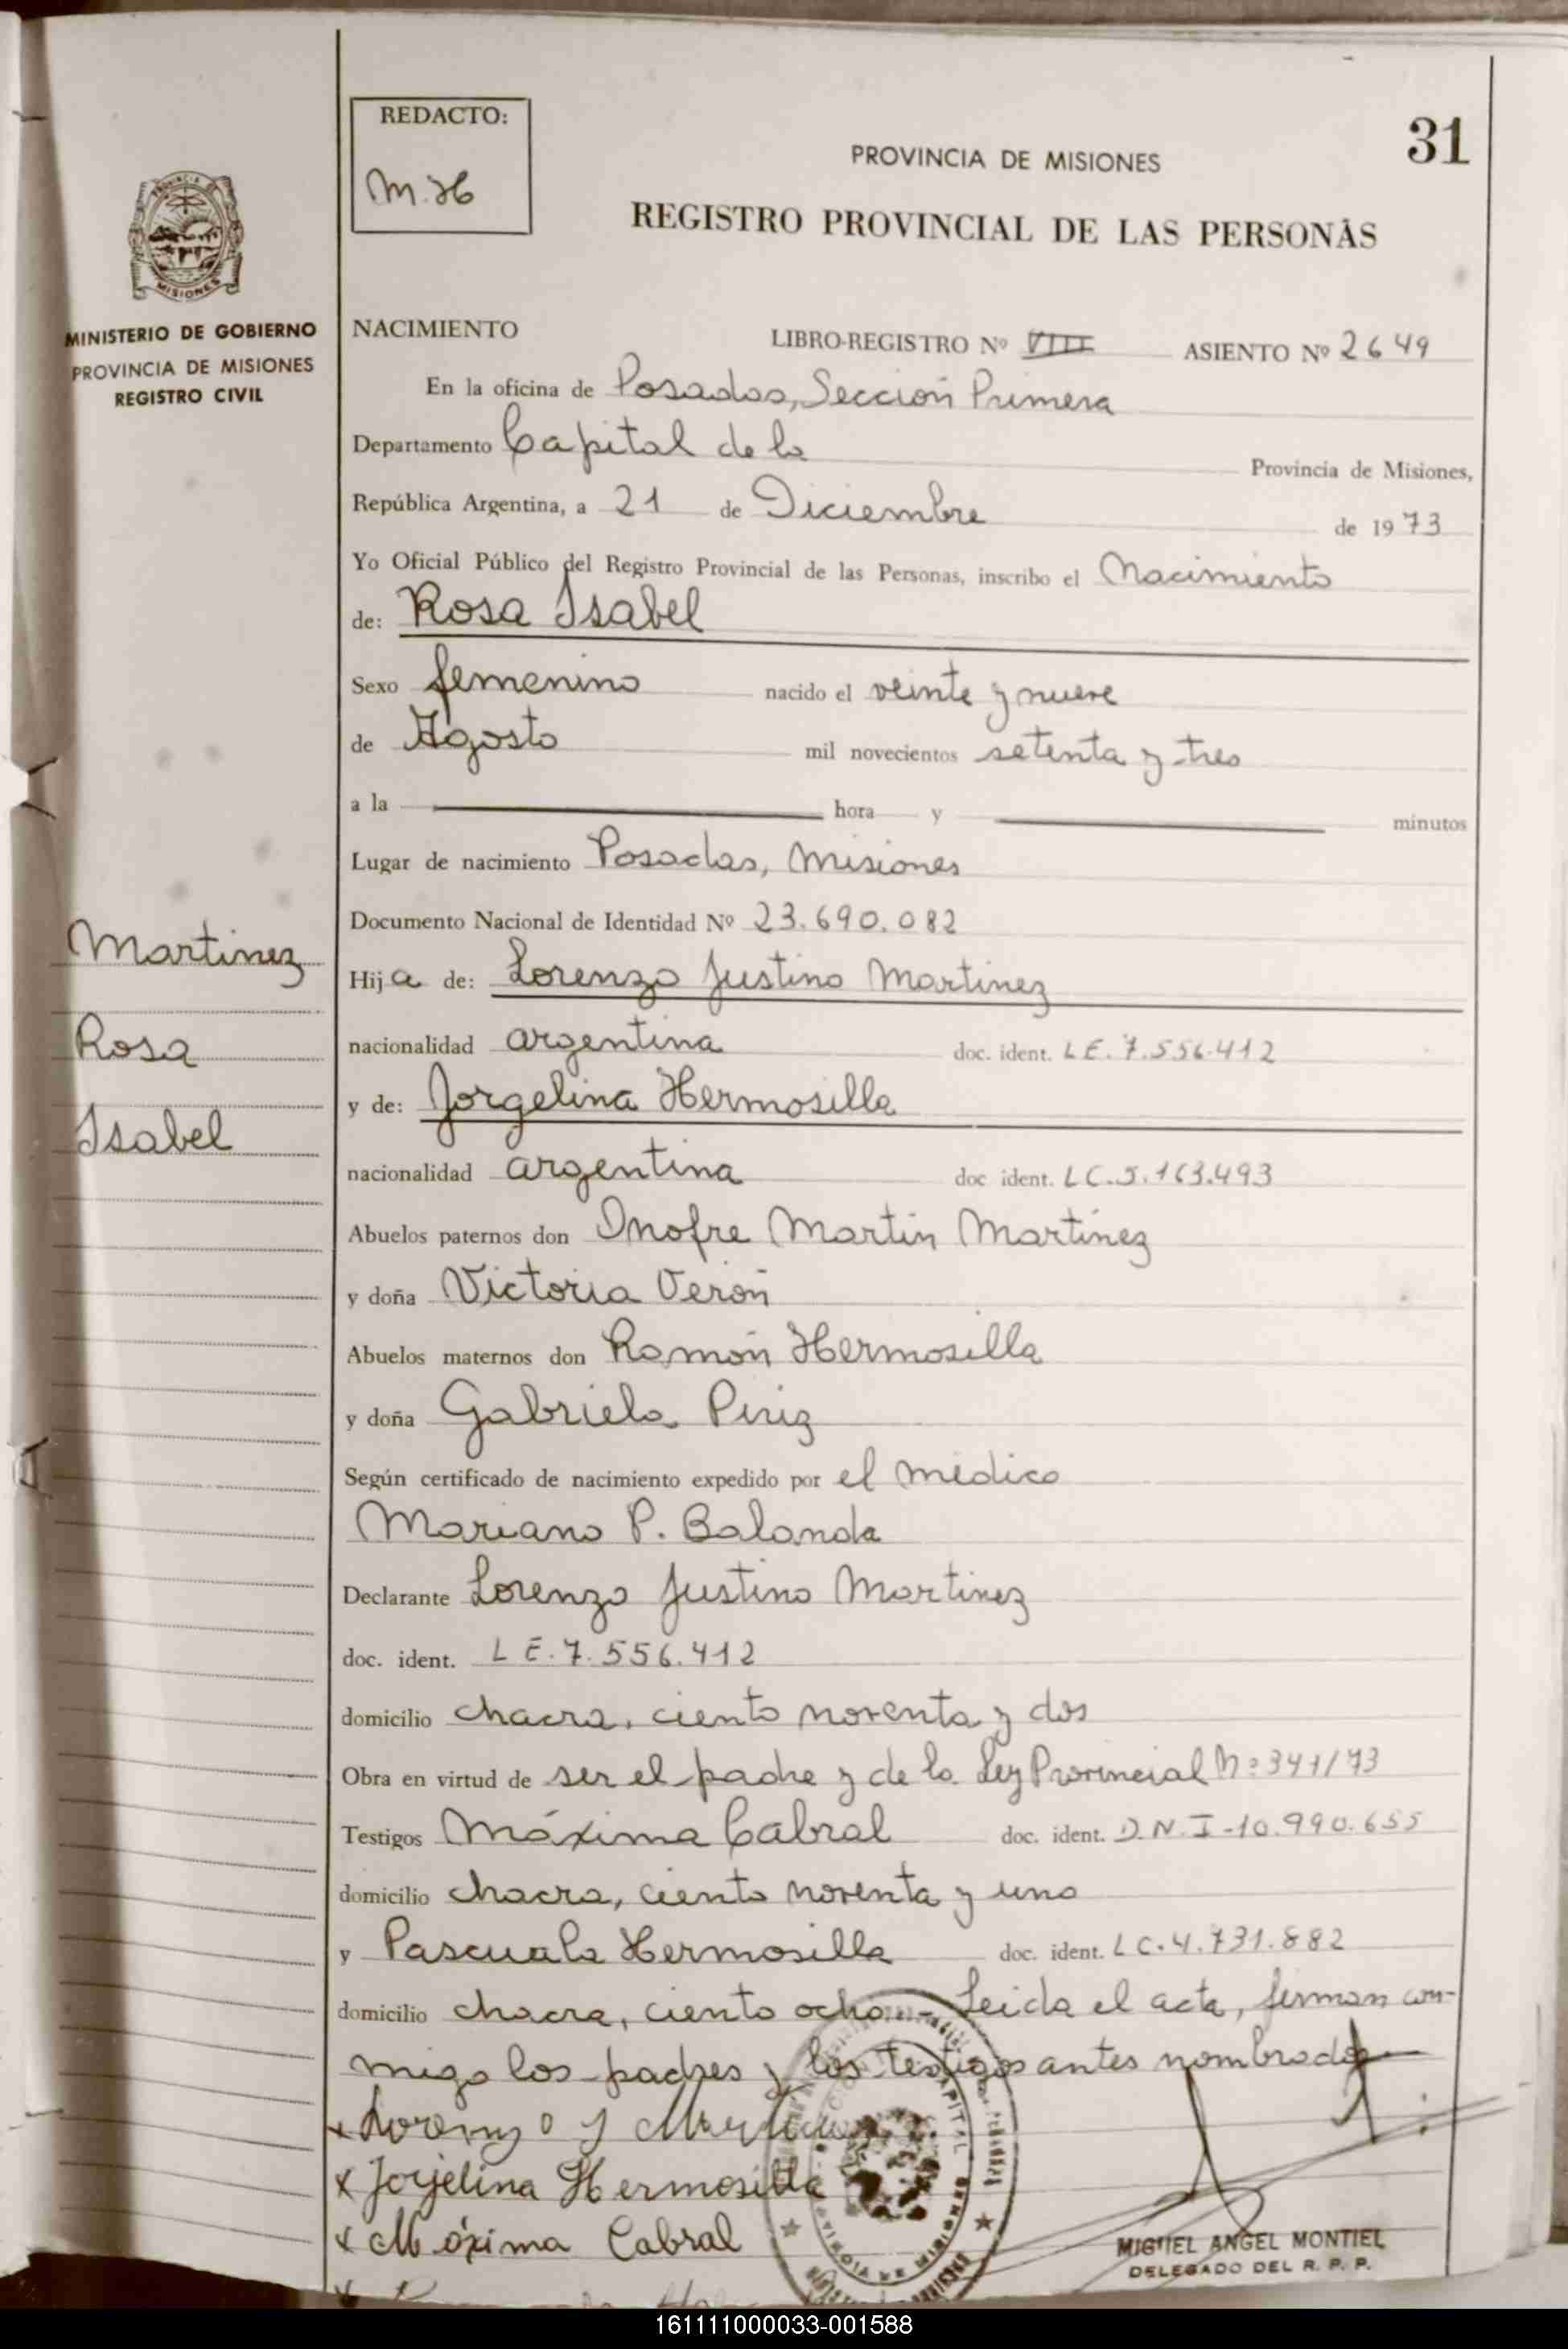 REDACTO:
M.H
31
PROVINCIA DE MISIONES
REGISTRO PROVINCIAL DE LAS PERSONAS
MISIONES
MINISTERIO DE GOBIERNO
PROVINCIA DE MISIONES
REGISTRO CIVIL
NACIMIENTO LIBRO-REGISTRO Nº VIII ASIENTO Nº 2649
En la oficina de Posadas, Sección Primera
Departamento Capital de la Provincia de Misiones,
República Argentina, a 21 de Diciembre de 1973
Yo Oficial Público del Registro Provincial de las Personas, inscribo el Nacimiento
de: Rosa Isabel
Sexo femenino nacido el veinte y nueve
de Agosto mil novecientos setenta y tres
a la hora y minutos
Lugar de nacimiento Posadas, Misiones
Documento Nacional de Identidad Nº 23.690.082
Martinez
Rosa
Isabel
Hija de: Lorenzo Justino Martinez
nacionalidad argentina doc. ident. LE. 7.556.412
y de: Jorgelina Hermosilla
nacionalidad argentina doc ident. LC.5.163.493
Abuelos paternos don Onofre Martin Martinez
y doña Victoria Verón
Abuelos maternos don Ramón Hermosilla
y doña Gabriela Piriz
Según certificado de nacimiento expedido por el médico
Mariano P. Balanda
Declarante Lorenzo Justino Martinez
doc. ident. L E. 7. 556.412
domicilio chacra, ciento noventa y dos
Obra en virtud de ser el padre y de la Ley Provincial Nº 341/73
Testigos Máxima Cabral doc. ident. D.N.I-10.990.655
domicilio chacra, ciento noventa y uno
y Pascuala Hermosilla doc. ident. LC.4.731.882
domicilio chacra, ciento ocho.- Leida el acta, firman con-
migo los padres y los testigos antes nombrados
x Lorenzo J Martinez
x Jorjelina Hermosilla
x Máxima Cabral
MIGUEL ANGEL MONTIEL
DELEGADO DEL R. P. P.
161111000033-001588